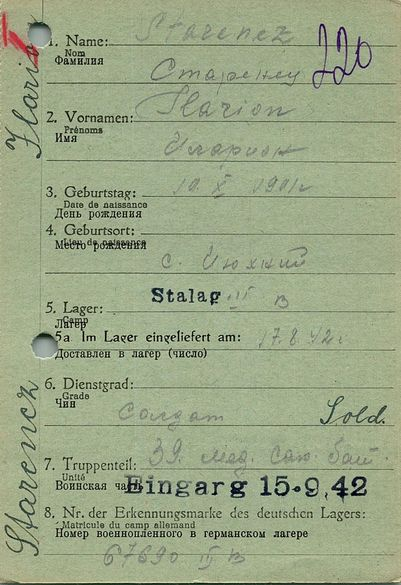 Ilarion
Starenez
220
1. Name: Starenez
Nom
Фамилия
Старенец
2. Vornamen: Ilarion
Prénoms
Имя
Иларион
3. Geburtstag: 10. X 1901г
Date de naissance
День рождения
4. Geburtsort:
Lieu de naissance
Место рождения
с.
5. Lager: Stalag III B
Camp
Лагер
5a Im Lager eingeliefert am: 17.8.42г
Доставлен в лагер (число)
6. Dienstgrad:
Grade
Чин
солдат Sold.
7. Truppenteil: 39. мед. сан. бат.
Unité
Воинская часть
Eingarg 15.9.42
8. Nr. der Erkennungsmarke des deutschen Lagers:
Matricule du camp allemand
Номер военнопленного в германском лагере
67690 III B